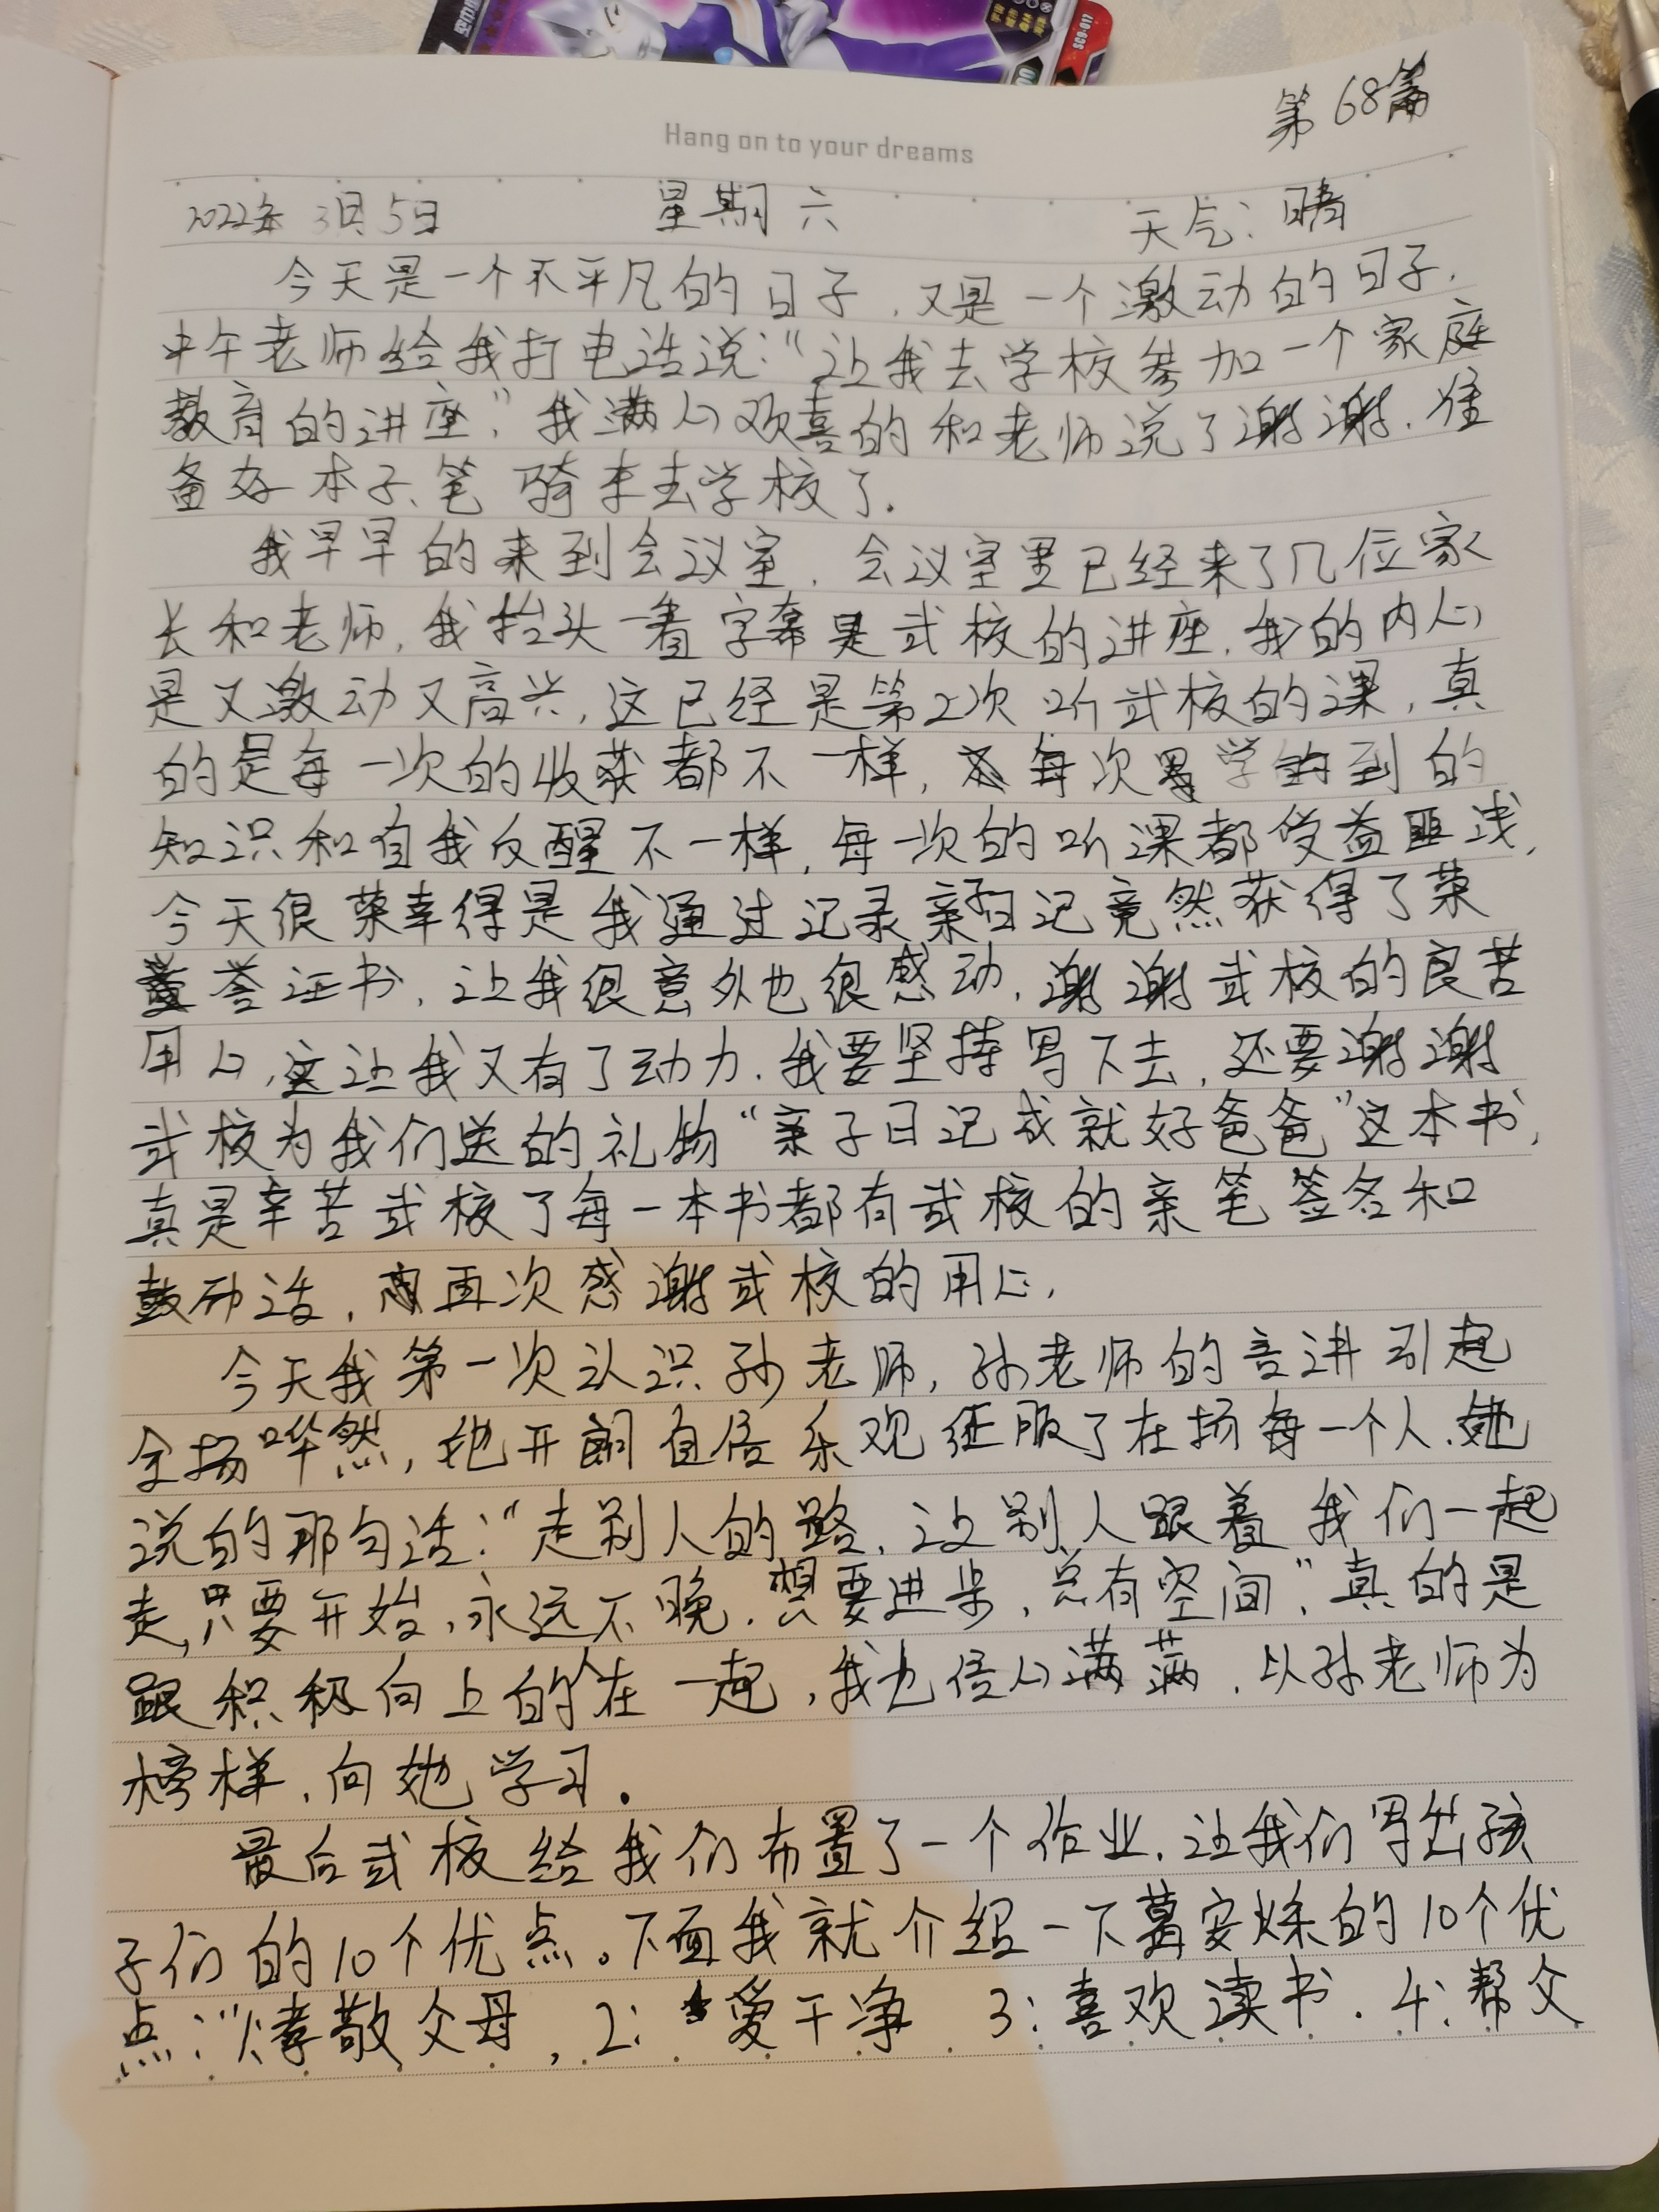 SC9-017
第68篇
Hang on to your dreams
2022年 3月5日 星期六 天气:晴
今天是一个不平凡的日子,又是一个激动的日子.
中午老师给我打电话说:“让我去学校参加一个家庭
教育的讲座”,我满心欢喜的和老师说了谢谢.准
备好本子、笔 骑车去学校了.
我早早的来到会议室,会议室里已经来了几位家
长和老师,我抬头一看字幕是武校的讲座,我的内心
是又激动又高兴,这已经是第2次听武校的课,真
的是每一次的收获都不一样,每次学到的
知识和自我反醒不一样,每一次的听课都受益匪浅,
今天很荣幸得是我通过记录亲子日记竟然获得了荣
誉证书,让我很意外也很感动,谢谢武校的良苦
用心,这让我又有了动力.我要坚持写下去,还要谢谢
武校为我们送的礼物“亲子日记成就好爸爸”这本书,
真是辛苦武校了每一本书都有武校的亲笔签名和
鼓励话,再次感谢武校的用心.
今天我第一次认识孙老师,孙老师的言讲引起
全场哗然,她开朗自信乐观征服了在场每一个人.她
说的那句话:“走别人的路,让别人跟着我们一起
走,只要开始,永远不晚.想要进步,总有空间”,真的是
跟积极向上的人在一起,我也信心满满.以孙老师为
榜样,向她学习.
最后武校给我们布置了一个作业.让我们写出孩
子们的10个优点。下面我就介绍一下葛安烁的10个优
点:“1:孝敬父母,2:爱干净 3:喜欢读书.4:帮父